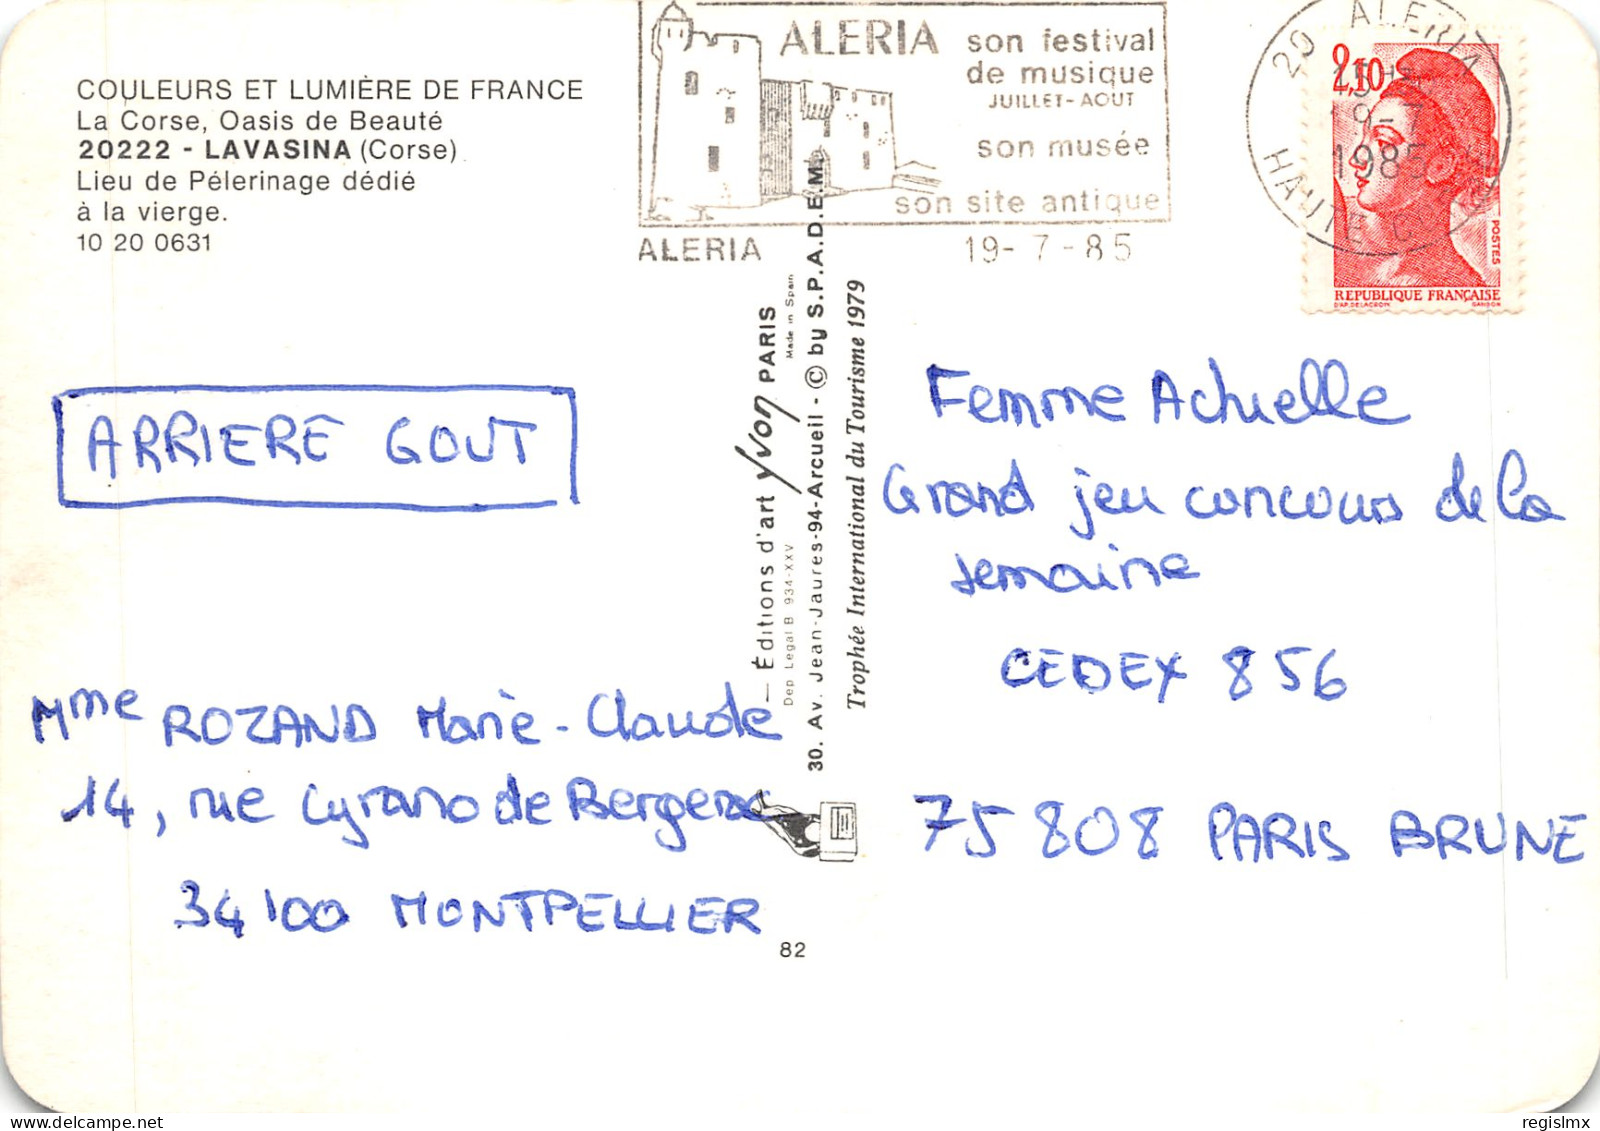 COULEURS ET LUMIÈRE DE FRANCE
La Corse, Oasis de Beauté
20222 - LAVASINA (Corse)
Lieu de Pélerinage dédié
à la vierge.
10 20 0631
ALERIA
son festival
de musique
JUILLET - AOUT
son musée
son site antique
ALERIA 19-7-85
20 ALERIA
15H
19-7
1985
HAUTE CORSE
2,10
POSTES
REPUBLIQUE FRANÇAISE
D'AP. DELACROIX GANDON
ARRIERE GOUT
Mme ROZAND Marie-Claude
14, rue Cyrano de Bergerac
34100 MONTPELLIER
Éditions d'art Yvon PARIS
Dep Legal B 934-XXV Made in Spain
30. Av. Jean-Jaures-94-Arcueil - © by S.P.A.D.E.M.
Trophée International du Tourisme 1979
82
Femme Actuelle
Grand jeu concours de la
semaine
CEDEX 856
75 808 PARIS BRUNE
regislmx